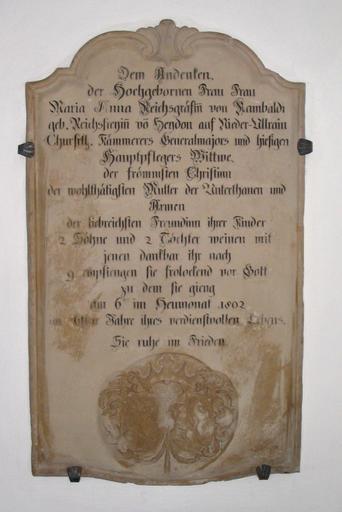 Dem Andenken.
der Hochgebornen Frau Frau
Maria Anna Reichsgräfin̄ von Kambaldi
geb. Reichsfreyin̄ vō Heydon auf Nieder-Ultrain
Churfstl. Kämmerers Generalmajors und hiesigen
Hauptpflegers Wittwe.
der frömmsten Christinn
der wohlthätigsten Mutter der Unterthanen und
Armen
der liebreichsten Freundinn ihrer Kinder
2 Söhne und 2 Töchter weinen mit
jenen dankbar ihr nach
9 empfiengen sie frolockend vor Gott
zu dem sie gieng
am 6 im Heumonat 1802
im Jahre ihres verdienstvollen Lebens.
Sie ruhe im Frieden.